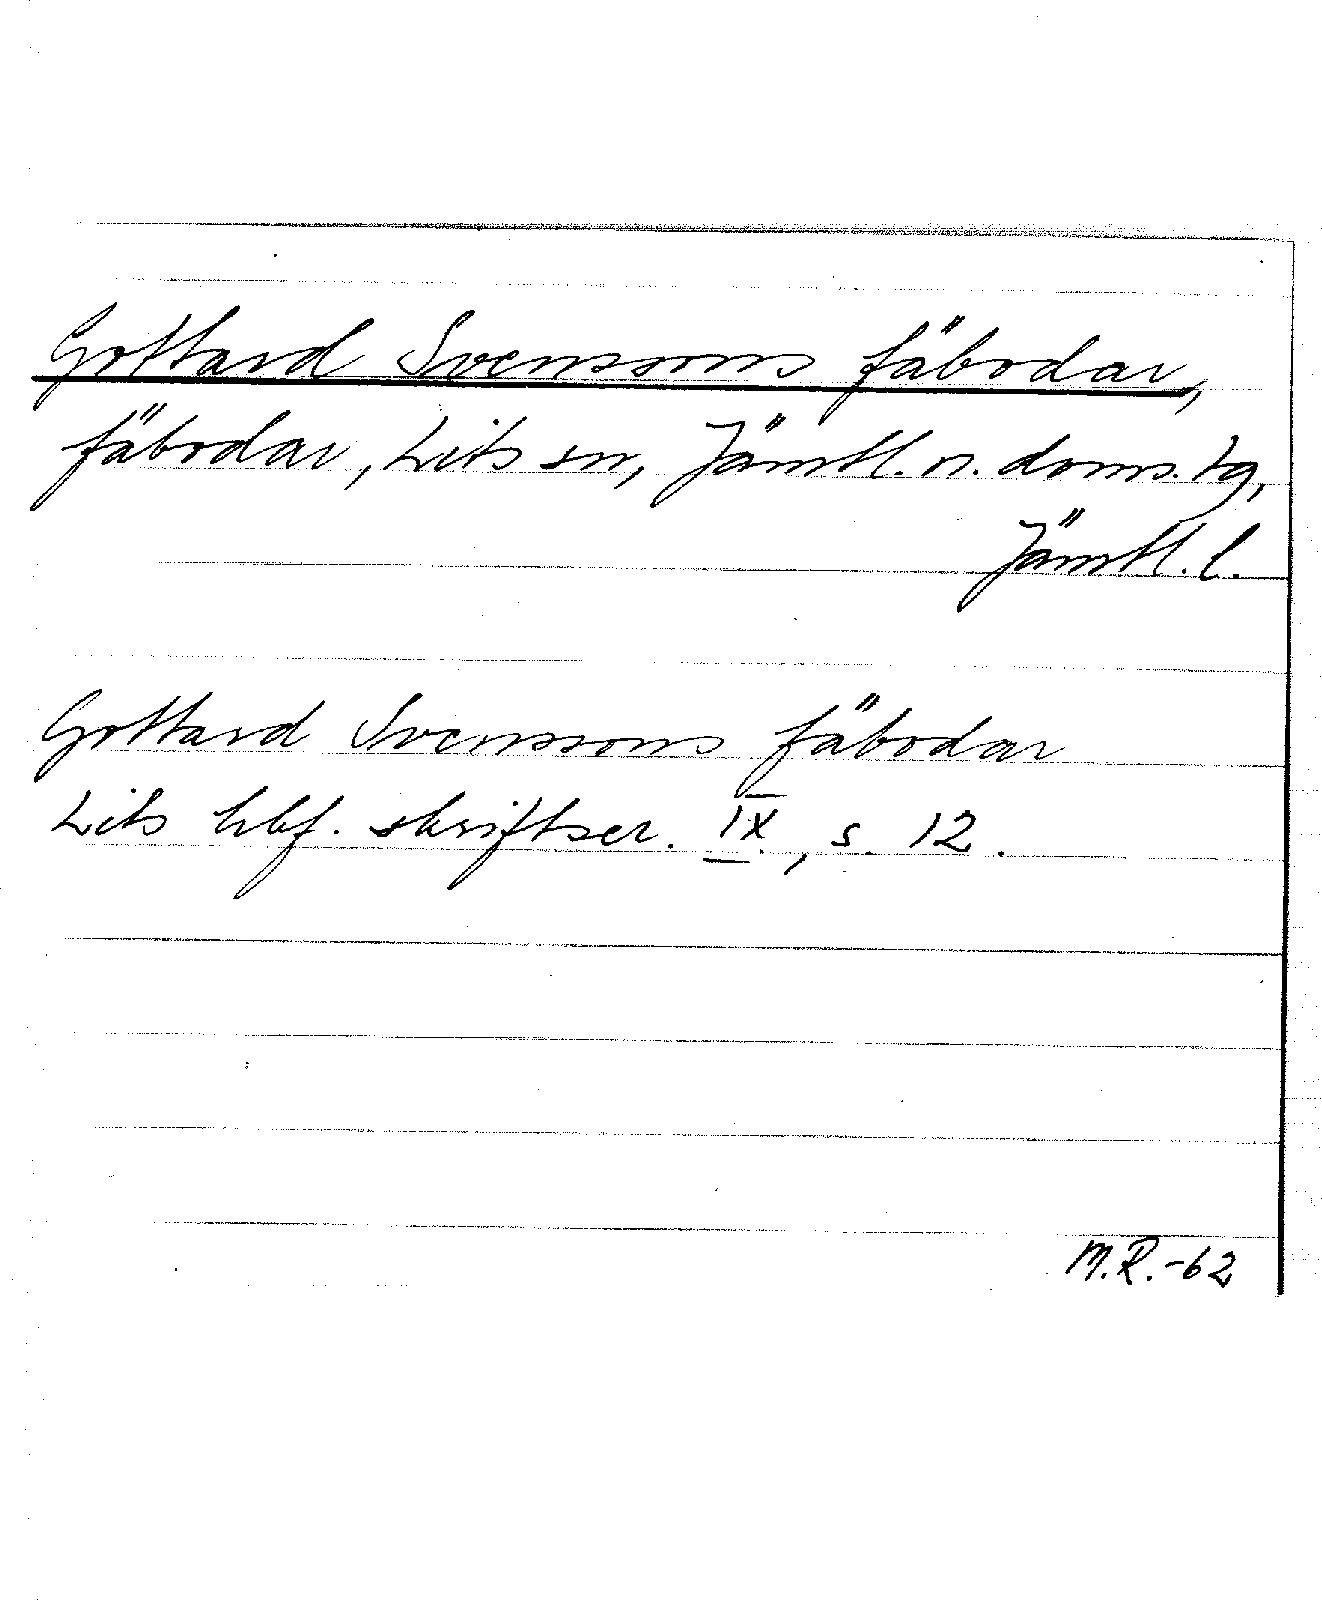 Gottard Svenssons fäbodar,
fäbodar, Lits sn, Jämtl. n. doms. tg,
Jämtl. l.
Gottard Svenssons fäbodar
Lits hbf. skriftser. IX, s. 12.
M.R.-62